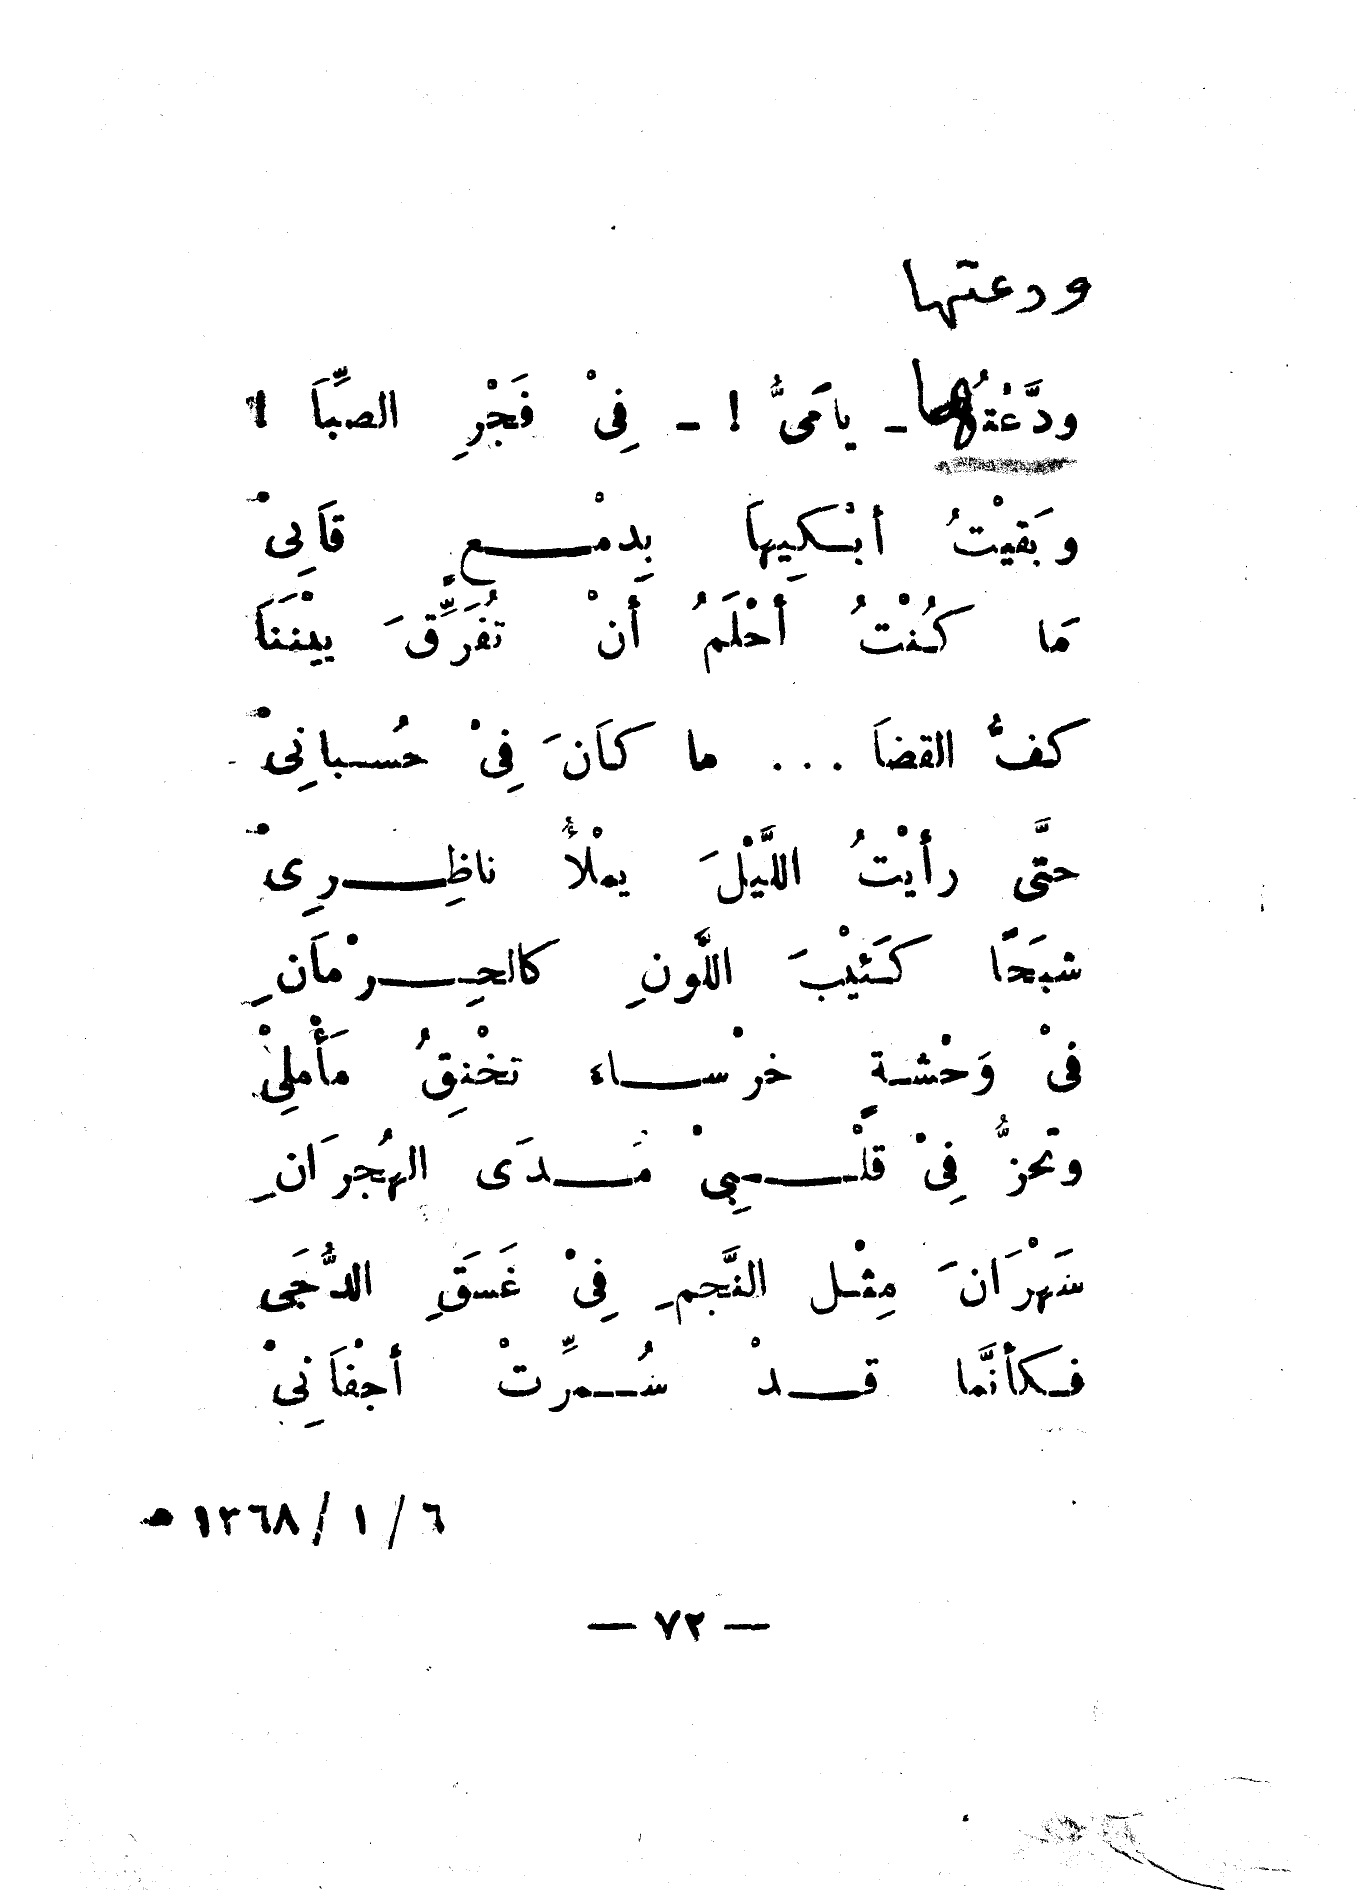 ودعتها
ودَّعْتُها ـ يا مَىُّ ! ـ فِىْ فَجْرِ الصِّبَا !
وَبَقيْتُ أبْكِيهَا بِدمْعٍ قَانِىْ
مَا كُنْتُ أحْلَمُ أنْ تُفَرِّقَ بيْنَنَا
كفُّ القضَا ... ما كَانَ فِىْ حُسبانِىْ
حتَّى رأيْتُ اللَّيْلَ يملْأُ ناظِرِىْ
شبَحًا كَئيْبَ اللَّونِ كالحِرْمَانِ
فىْ وَحْشةٍ خرْساء تخْنِقُ مَأْملِىْ
وتحزُّ فِىْ قلْبِىْ مُدَى الهُجرَانِ
سَهْرَانَ مِثْل النَّجمِ فِىْ غَسَقِ الدُّجَى
فكأنَّما قدْ سُمِّرتْ أجْفَانِىْ
٦ / ١ / ١٣٦٨ هـ
— ٧٢ —